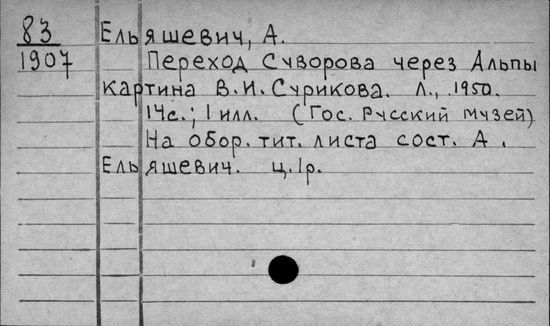 83 Ельяшевич, А.
1907 Переход Суворова через Альпы
картина В.И. Сурикова. Л., 1950.
14с.; 1 илл. (Гос. Русский музей)
На обор. тит. листа сост. А.
Ельяшевич. ц. 1р.